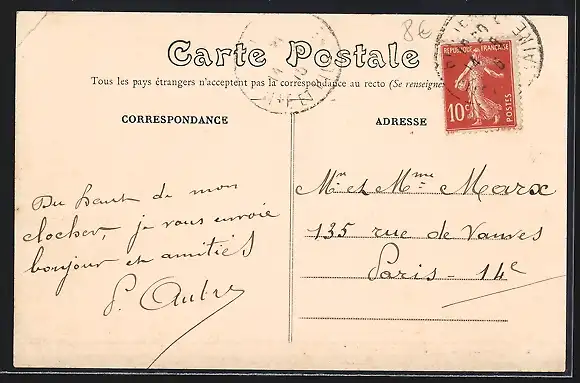 8€
Carte Postale
Tous les pays étrangers n'acceptent pas la correspondance au recto (Se renseigner
RÉPUBLIQUE FRANÇAISE
10c
POSTES
CORRESPONDANCE
ADRESSE
Du haut de mon
clocher, je vous envoie
bonjour et amitiés
Mr et Mme Marx
135 rue de Vanves
Paris - 14e